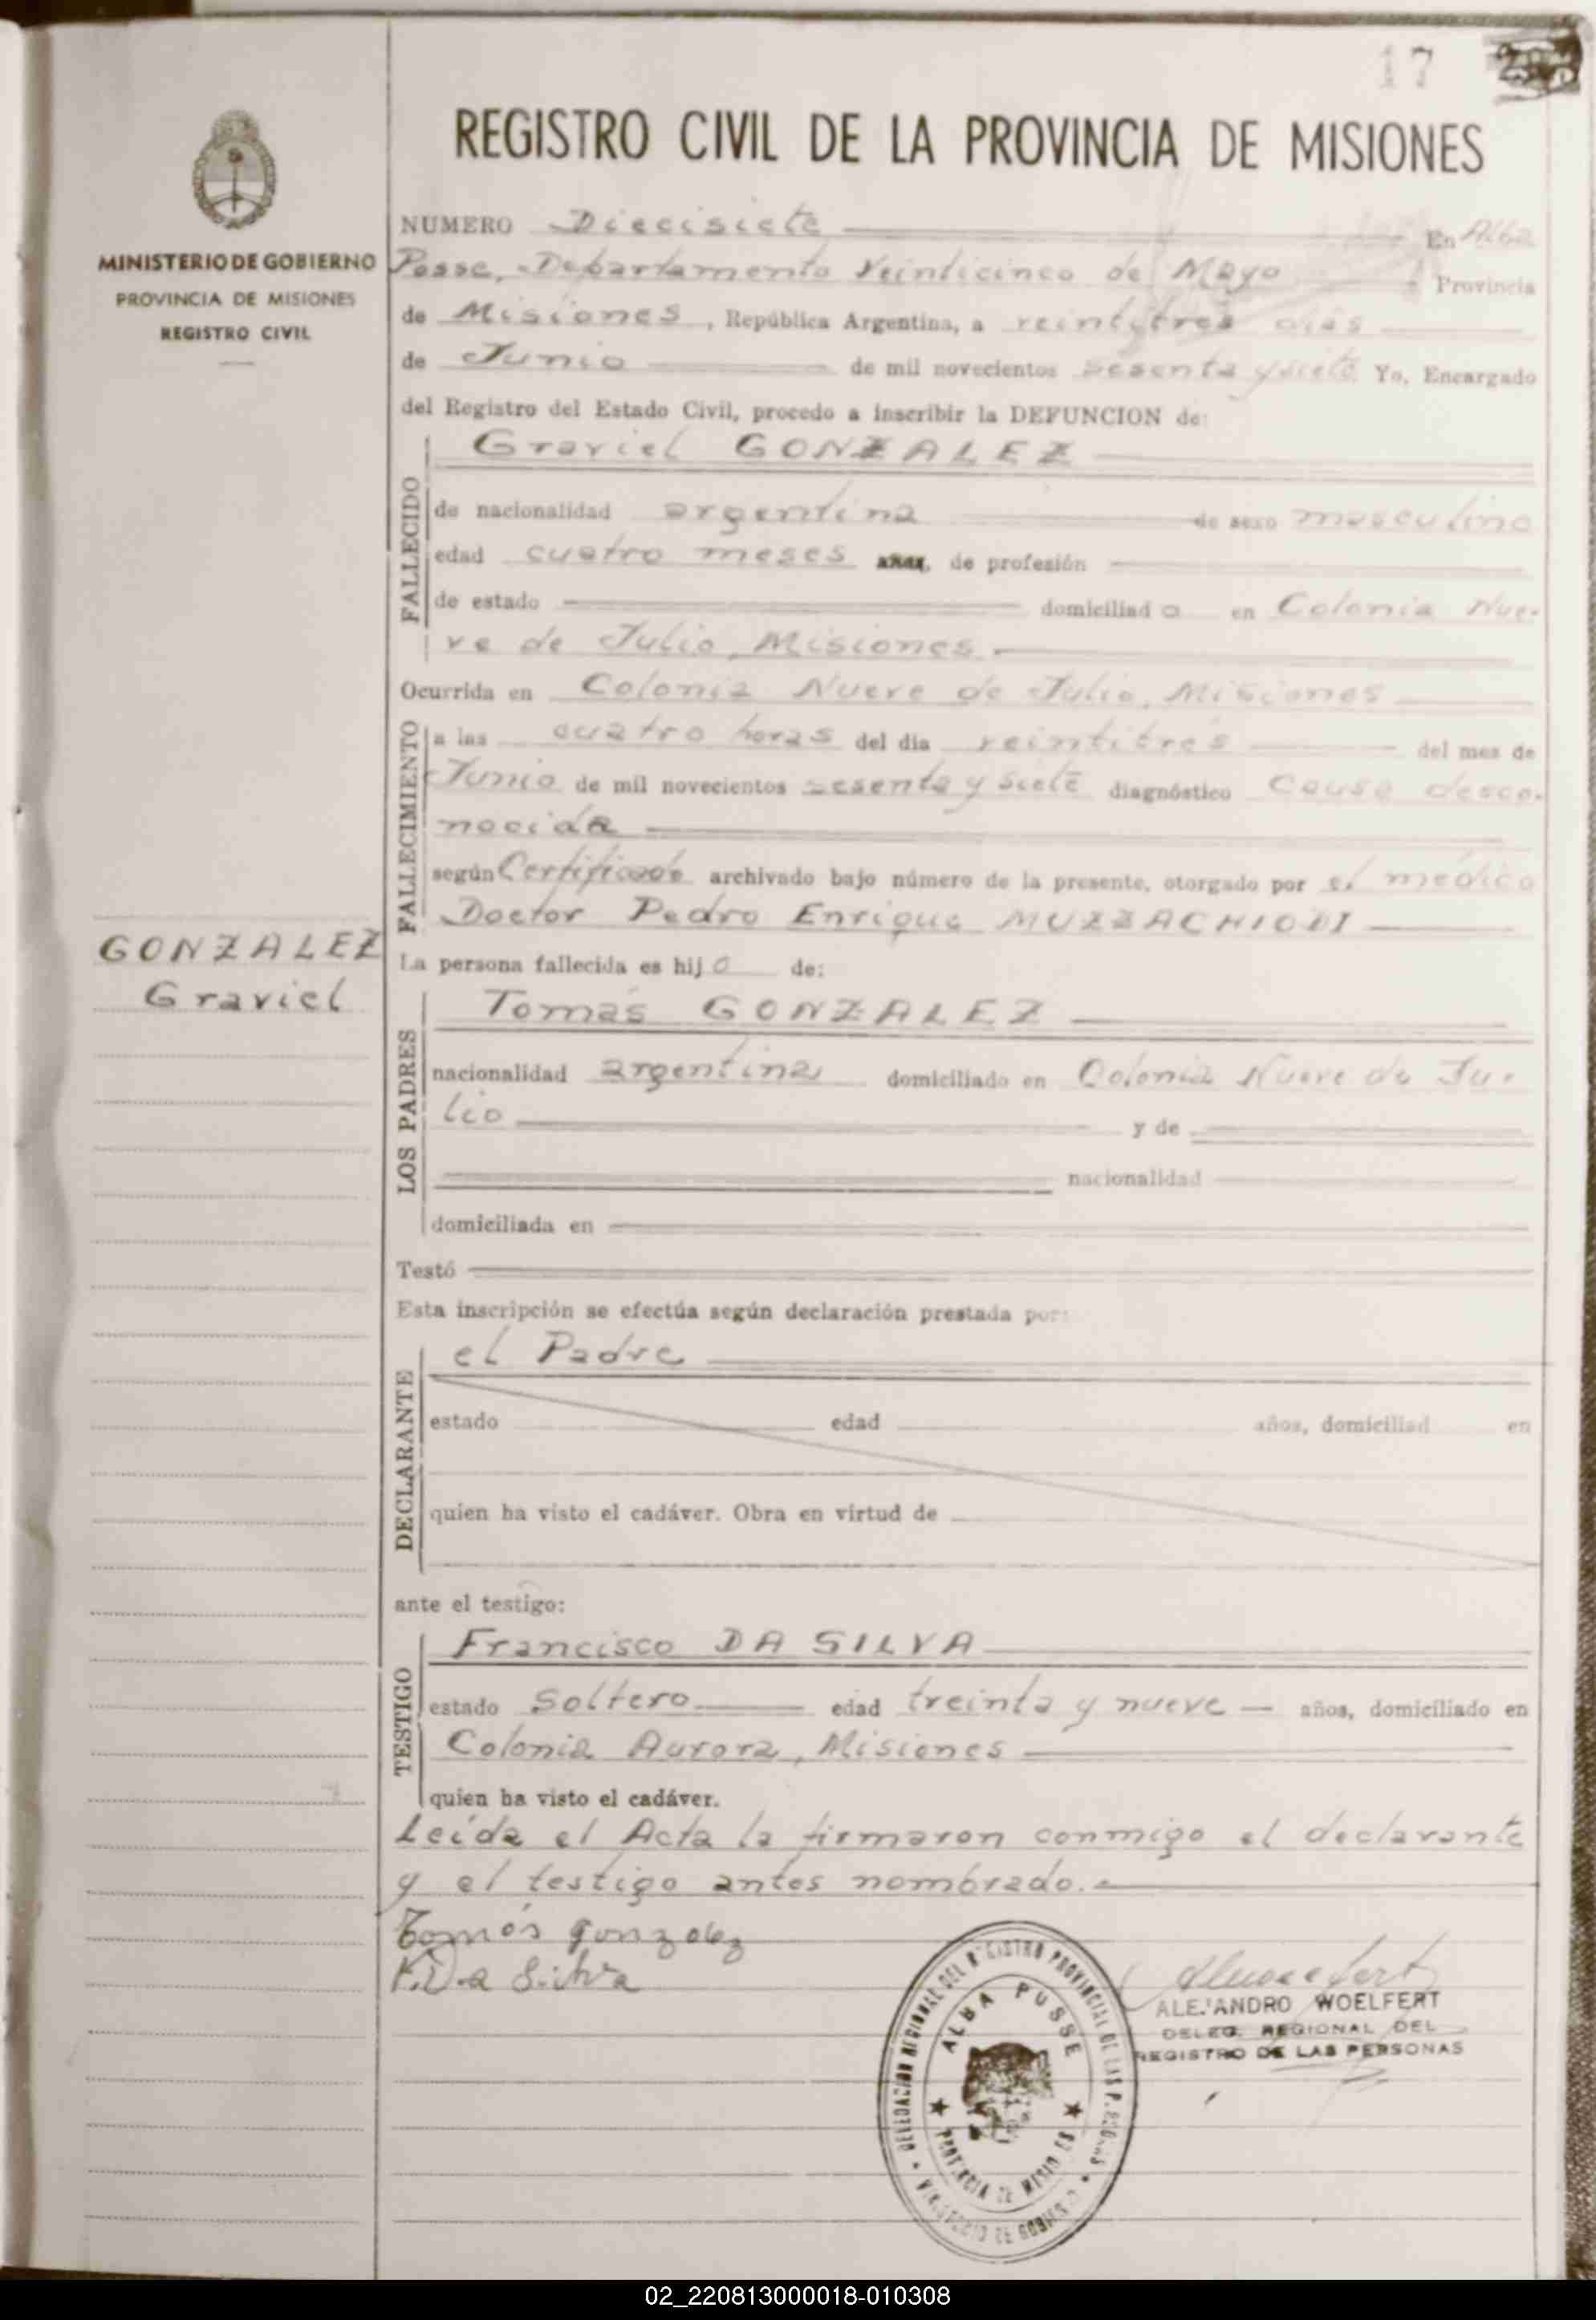 17
REGISTRO CIVIL DE LA PROVINCIA DE MISIONES
MINISTERIO DE GOBIERNO
PROVINCIA DE MISIONES
REGISTRO CIVIL
NUMERO Diecisiete En Alba
Posse, Departamento Veinticinco de Mayo Provincia
de Misiones, República Argentina, a veintitres días
de Junio de mil novecientos sesenta y siete Yo, Encargado
del Registro del Estado Civil, procedo a inscribir la DEFUNCION de:
Graviel GONZALEZ
FALLECIDO
de nacionalidad argentina de sexo masculino
edad cuatro meses años, de profesión
de estado domiciliado en Colonia Nue-
ve de Julio, Misiones.
Ocurrida en Colonia Nueve de Julio, Misiones
FALLECIMIENTO
a las cuatro horas del dia veintitrés del mes de
Junio de mil novecientos sesenta y siete diagnóstico Causa desco-
nocida
según Certificado archivado bajo número de la presente, otorgado por el médico
Doctor Pedro Enrique MUZZACHIODI
GONZALEZ
Graviel
La persona fallecida es hijo de:
LOS PADRES
Tomás GONZALEZ
nacionalidad argentina domiciliado en Colonia Nueve de Ju-
lio y de
nacionalidad
domiciliada en
Testó
Esta inscripción se efectúa según declaración prestada por:
DECLARANTE
el Padre
estado edad años, domiciliad en
quien ha visto el cadáver. Obra en virtud de
ante el testigo:
TESTIGO
Francisco DA SILVA
estado Soltero edad treinta y nueve años, domiciliado en
Colonia Aurora, Misiones
quien ha visto el cadáver.
Leída el Acta la firmaron conmigo el declarante
y el testigo antes nombrado.
Tomás gonzalez
F. Da Silva
DELEGACION REGIONAL DEL REGISTRO PROVINCIAL DE LAS PERSONAS
ALBA POSSE
PROVINCIA DE MISIONES
MINISTERIO DE GOBIERNO
ALEJANDRO WOELFERT
DELEG. REGIONAL DEL
REGISTRO DE LAS PERSONAS
02_220813000018-010308